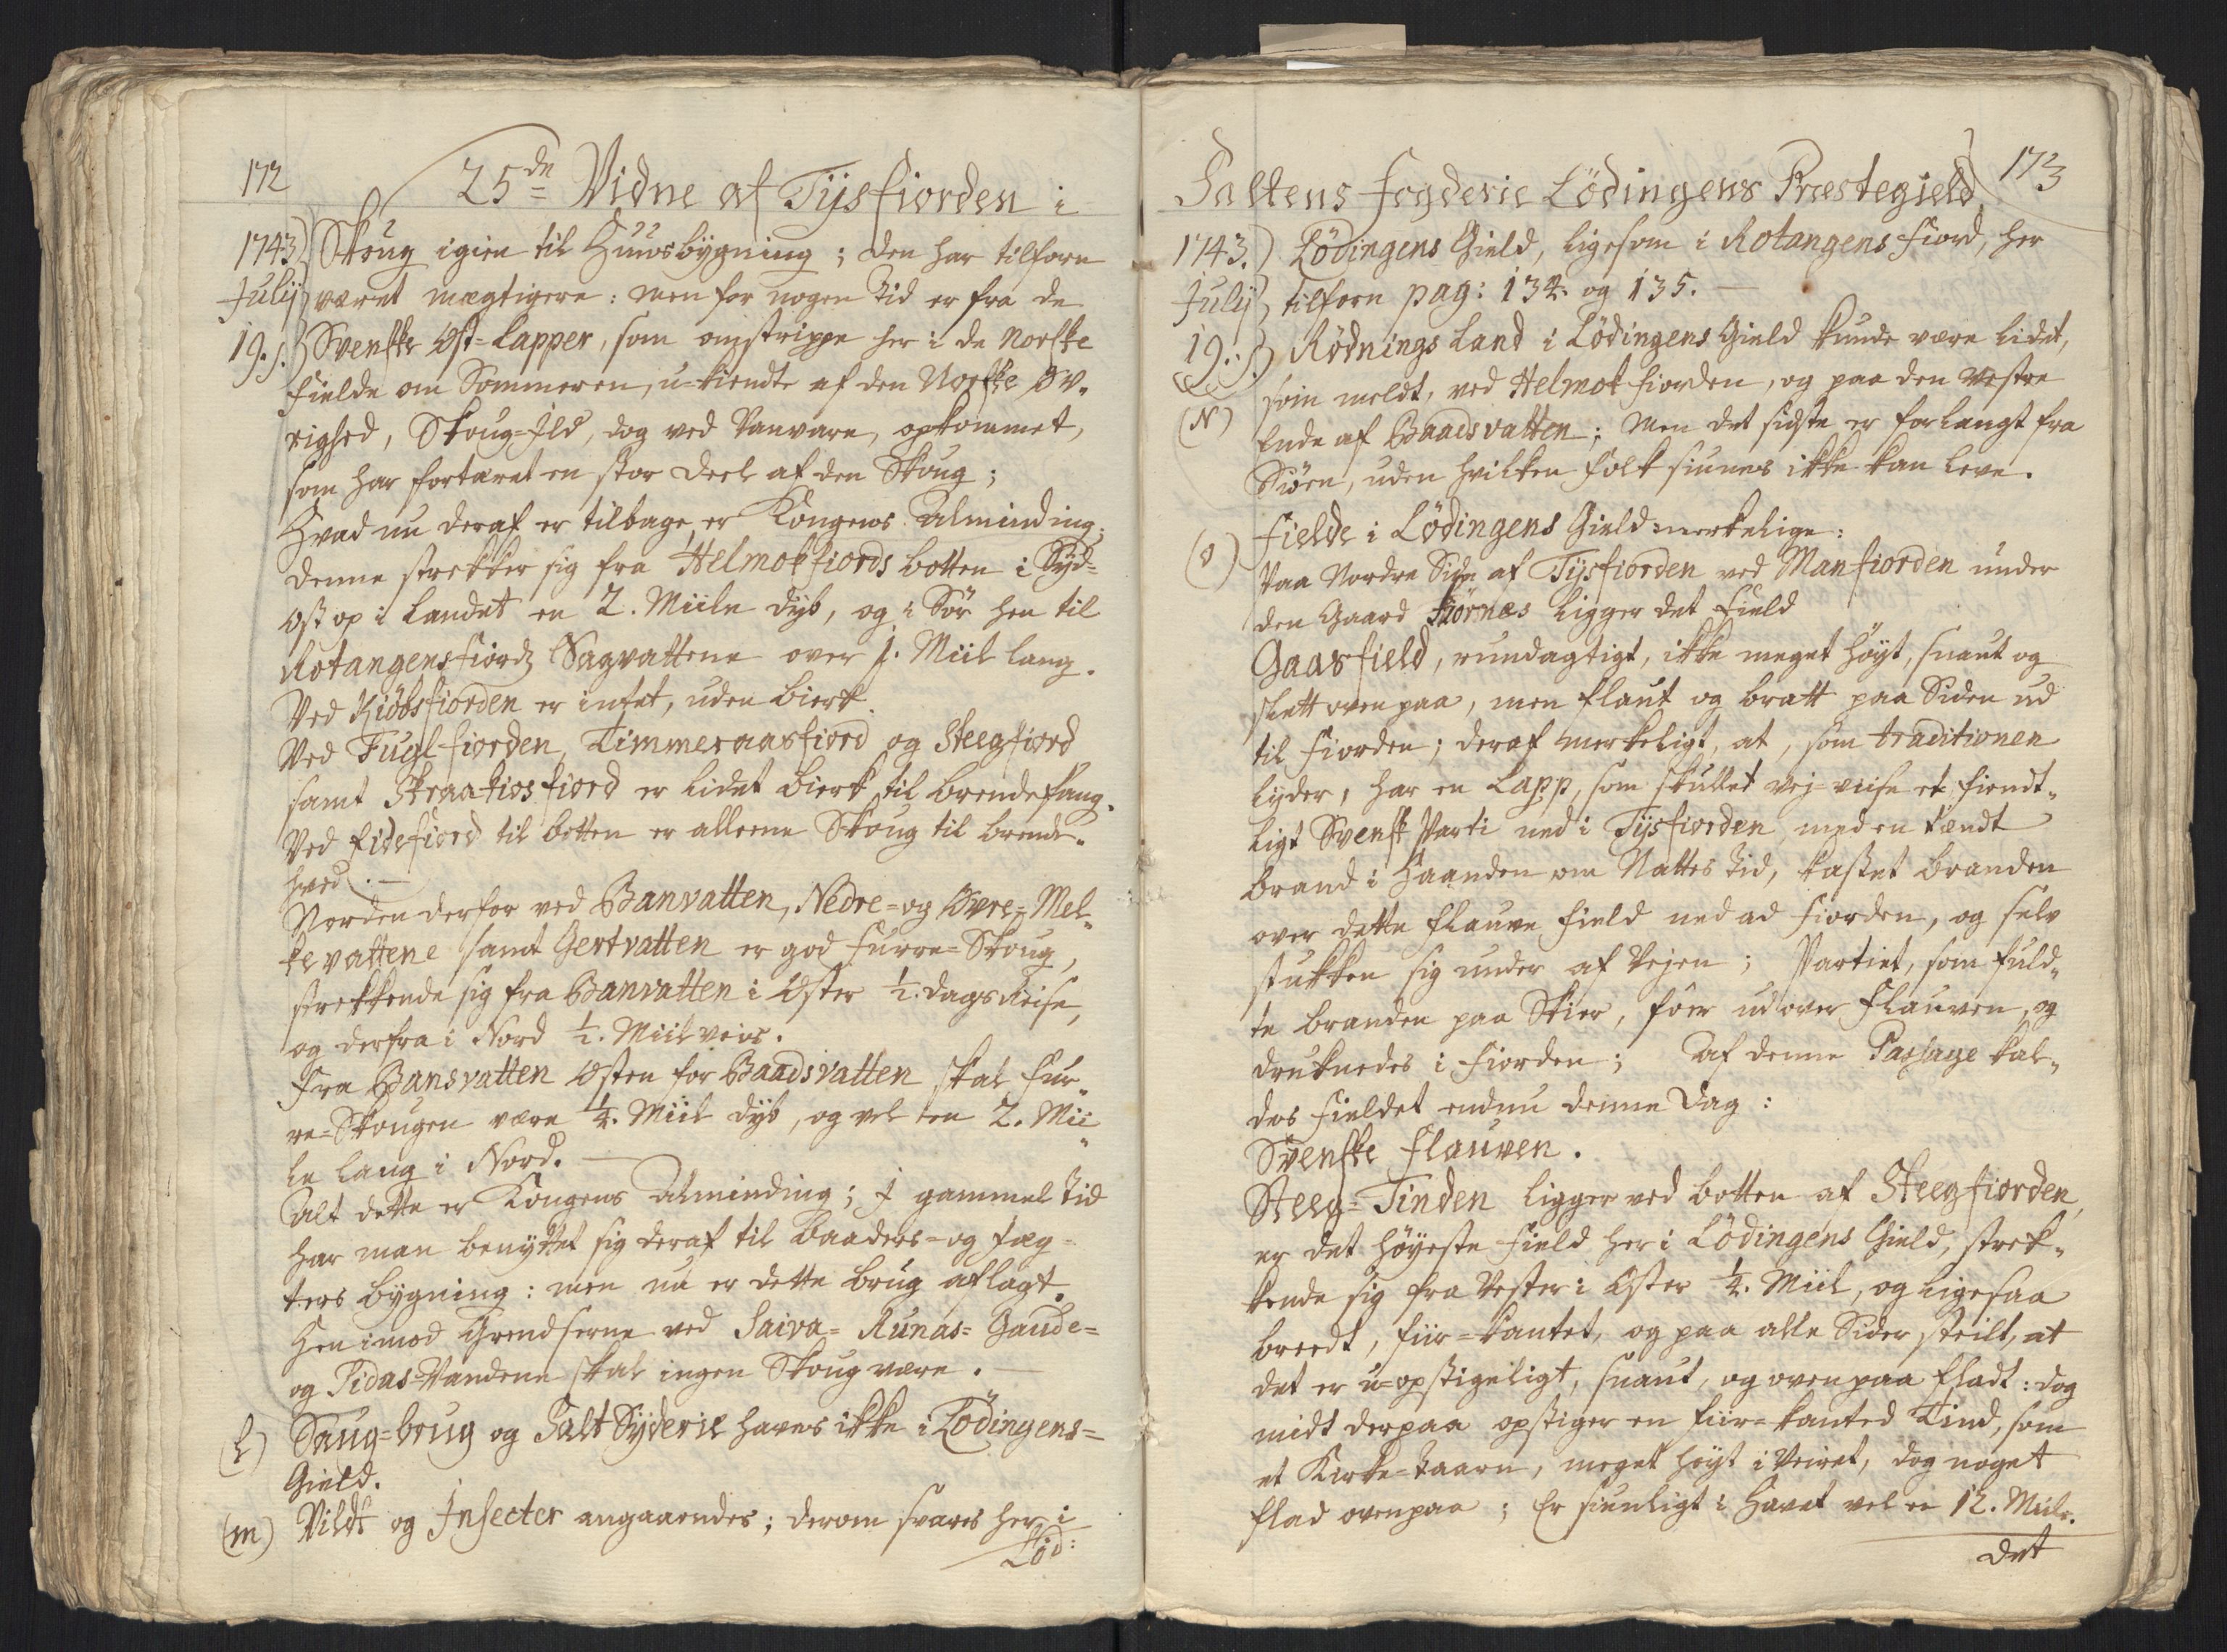 172
25de Vidne af Tysfiorden i
1743 Skoug igien til Huusbygning; den har tilforn
Julij været mægtigere: men for nogen Tid er fra de
19. s. Svenske Øst-Lapper, som omstrippe her i de Norske
Fielde om Sommeren, u-kiendte af den Norske Øv-
righed, Skoug-Ild, dog ved Vanvare, opkommet,
som har fortæret en stor Deel af den Skoug;
Hvad nu deraf er tilbage, er Kongens Alminding;
denne strekker sig fra Helmokfiords botten i Syd-
Ost op i Landet en 2. Miile dyb, og i Sør hen til
Rotangensfiords Sagvattene over 1. Miil lang.
Ved Kiöbsfiorden er intet, uden Birk.
Ved Fuglfiorden, Timmeraasfiord og Steegfiord
samt Skraakiosfiord er lidet Birk til Brendefang.
Ved Eidefiord til botten er alleene Skoug til brende-
hved. —
Norden derfor ved Banvatten, Nedre- og Øvre-Mel-
kevattene samt Gertvatten er god Furre-Skoug,
strekkende sig fra Banvatten i Øster ½. dags Reise,
og derfra i Nord ½. Miil veis.
Fra Bansvatten Østen for Baadsvatten skal Fur-
re-Skougen være ¼. Miil dyb, og vel en 2. Mii-
le lang i Nord. —
Alt dette er Kongens Alminding; I gammel Tid
har man benyttet sig deraf til Baaders- og Jæg-
ters bygning: men nu er dette brug aflagt.
Hen imod Grendserne ved Saiva- Runas- Gaude-
og Pidas-Vandene skal ingen Skoug være. —
(l) Saug-brug og Salt Syderie haves ikke i Lödingens-
Gield.
(m) Vildt og Insecter angaaendes; derom svares her i
Löd:
Saltens Fogderie Lödingens Præstegield 173
1743. Lödingens Gield, ligesom i Rotangens Fiord, her
Julij tilforn pag: 134. og 135. —
19. s. Rödnings Land i Lödingens Gield kunde være lidet,
(N) som meldt, ved Helmokfiorden, og paa den Vestre
Ende af Baadsvatten; men det sidste er for langt fra
Siöen, uden hvilken Folk siunes ikke kan leve.
(o) Fielde i Lödingens Gield merkelige:
Paa Nordre Side af Tysfiorden ved Manfiorden under
den Gaard Kiörnæs ligger det Field
Gaasfield, rundagtigt, ikke meget höyt, snaut og
slett oven paa, men flaut og bratt paa Siden ud
til Fiorden; deraf merkeligt, at, som traditionen
lyder, har en Lapp, som skullet vej-viise et fiendt-
ligt Svensk Parti ned i Tysfiorden, med en tændt
brand i Haanden om Nattes Tid, kastet branden
over dette flauve Field ned ad Fiorden, og selv
stukken sig under af Vejen; Partiet, som fuld-
te branden paa Skier, föer ud over Flauven, og
druknedes i Fiorden; Af denne Passage kal-
des Fieldet endnu denne Dag:
Svenske Flauven.
Steeg-Tinden ligger ved botten af Steegfiorden,
er det höyeste Field her i Lödingens Gield, strek-
kende sig fra Vester i Øster ¼. Miil, og ligesaa
bredt, fiir-kantet, og paa alle Sider steilt, at
det er u-opstigeligt, snaut, og oven paa fladt: dog
midt derpaa opstiger en fiir-kanted Tind, som
et Kirke-Taarn, meget höyt i Veiret, dog noget
flad oven paa; Er siunligt i Havet vel en 12. Miile.
det